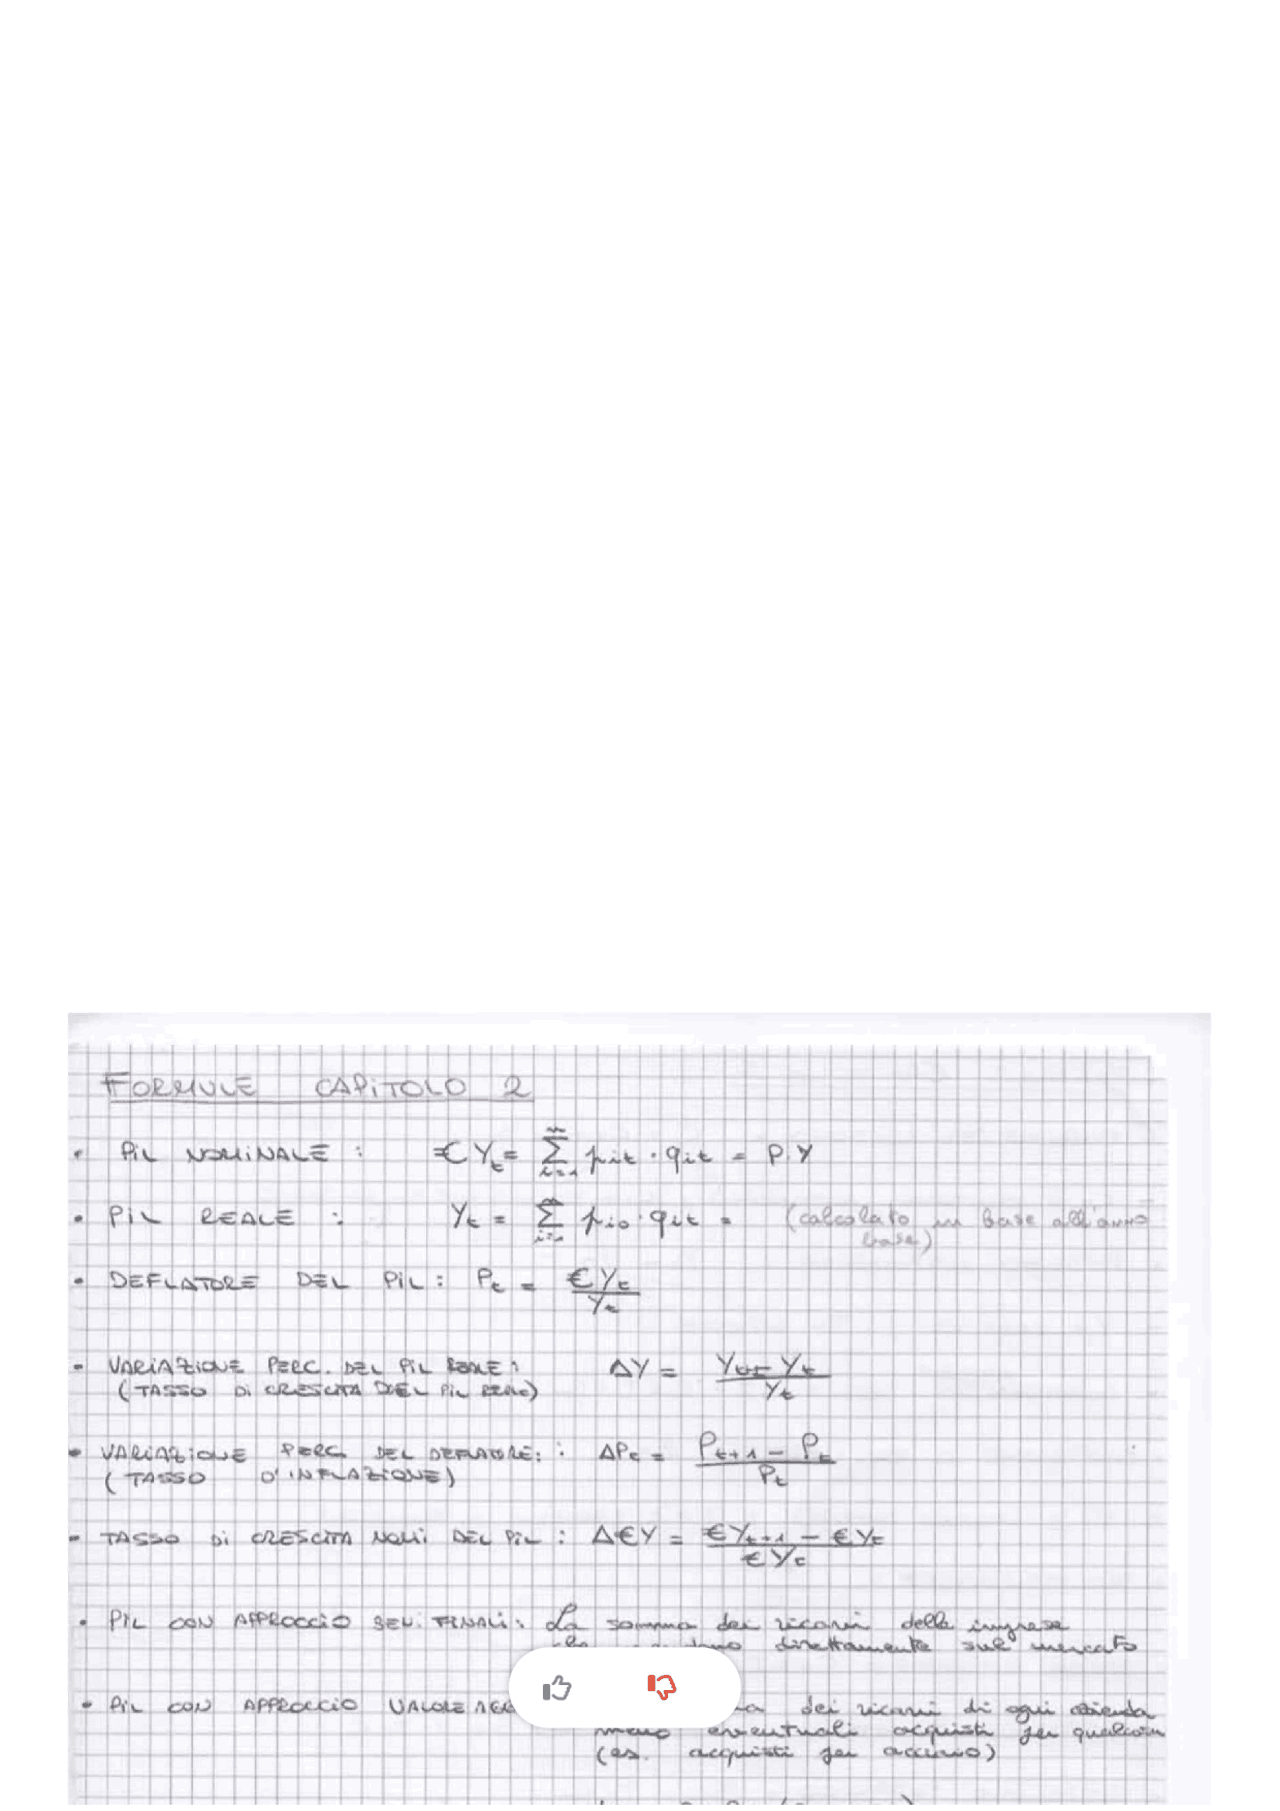 FORMULE CAPITOLO 2
• PIL NOMINALE : €Y_t = Σ_{i=1}^{n} p_{it} · q_{it} = P·Y
• PIL REALE : Y_t = Σ_{i=1}^{n} p_{i0} · q_{it} = (calcolato in base all'anno
base)
• DEFLATORE DEL PIL : P_t = €Y_t / Y_t
• VARIAZIONE PERC. DEL PIL REALE : ΔY = Y_{t+1} - Y_t / Y_t
(TASSO DI CRESCITA DEL PIL REALE)
• VARIAZIONE PERC. DEL DEFLATORE : : ΔP_t = P_{t+1} - P_t / P_t
(TASSO D'INFLAZIONE)
• TASSO DI CRESCITA NOMI DEL PIL : Δ€Y = €Y_{t+1} - €Y_t / €Y_t
• PIL CON APPROCCIO BENI FINALI : La somma dei ricavi delle imprese
direttamente sul mercato
• PIL CON APPROCCIO VALORE AGG dei ricavi di ogni azienda
meno eventuali acquisti per qualcosa
(es. acquisti per acciaio)